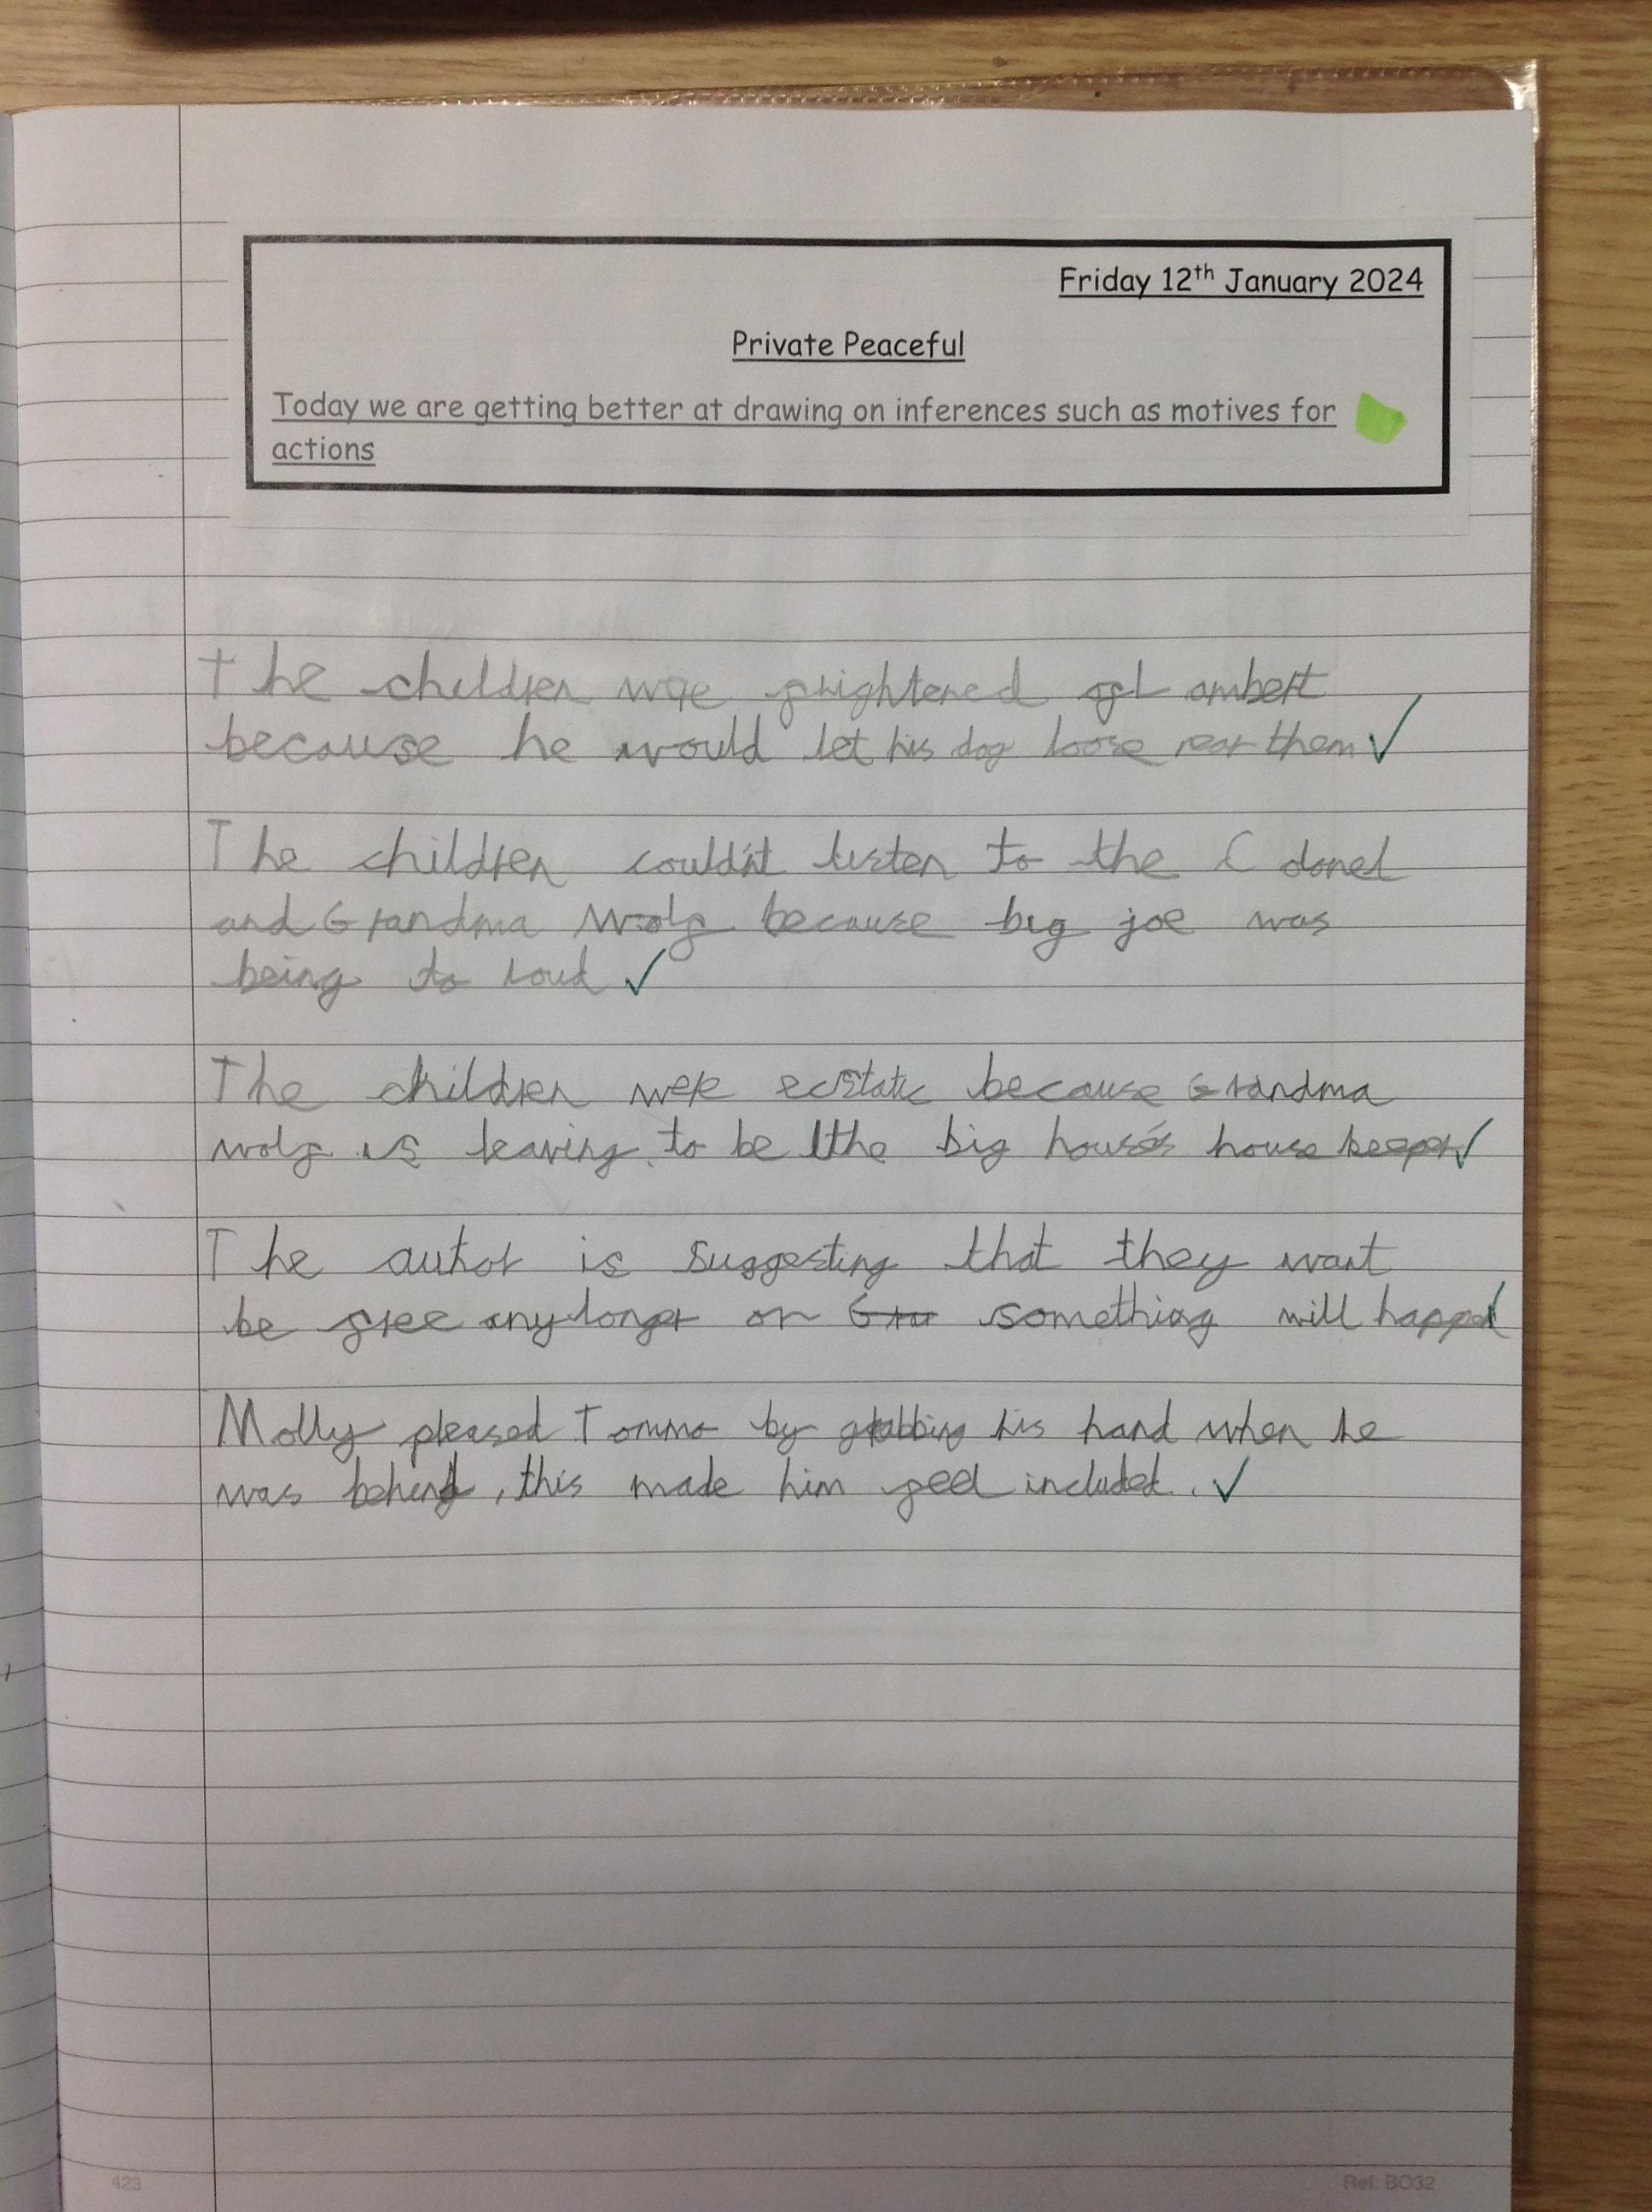 Friday 12th January 2024
Private Peaceful
Today we are getting better at drawing on inferences such as motives for
actions
The children were frightened of Lambert
because he would let his dog loose near them
The children couldn't listen to the C donel
and Grandma Wolf because big joe was
being to loud
The children were ecstatic because Grandma
wolf is leaving to be the big house's house keeper
The author is suggesting that they want
be free any longer or something will happen
Molly pleased Tommo by grabbing his hand when he
was behind, this made him feel included.
423
Ref. BO32